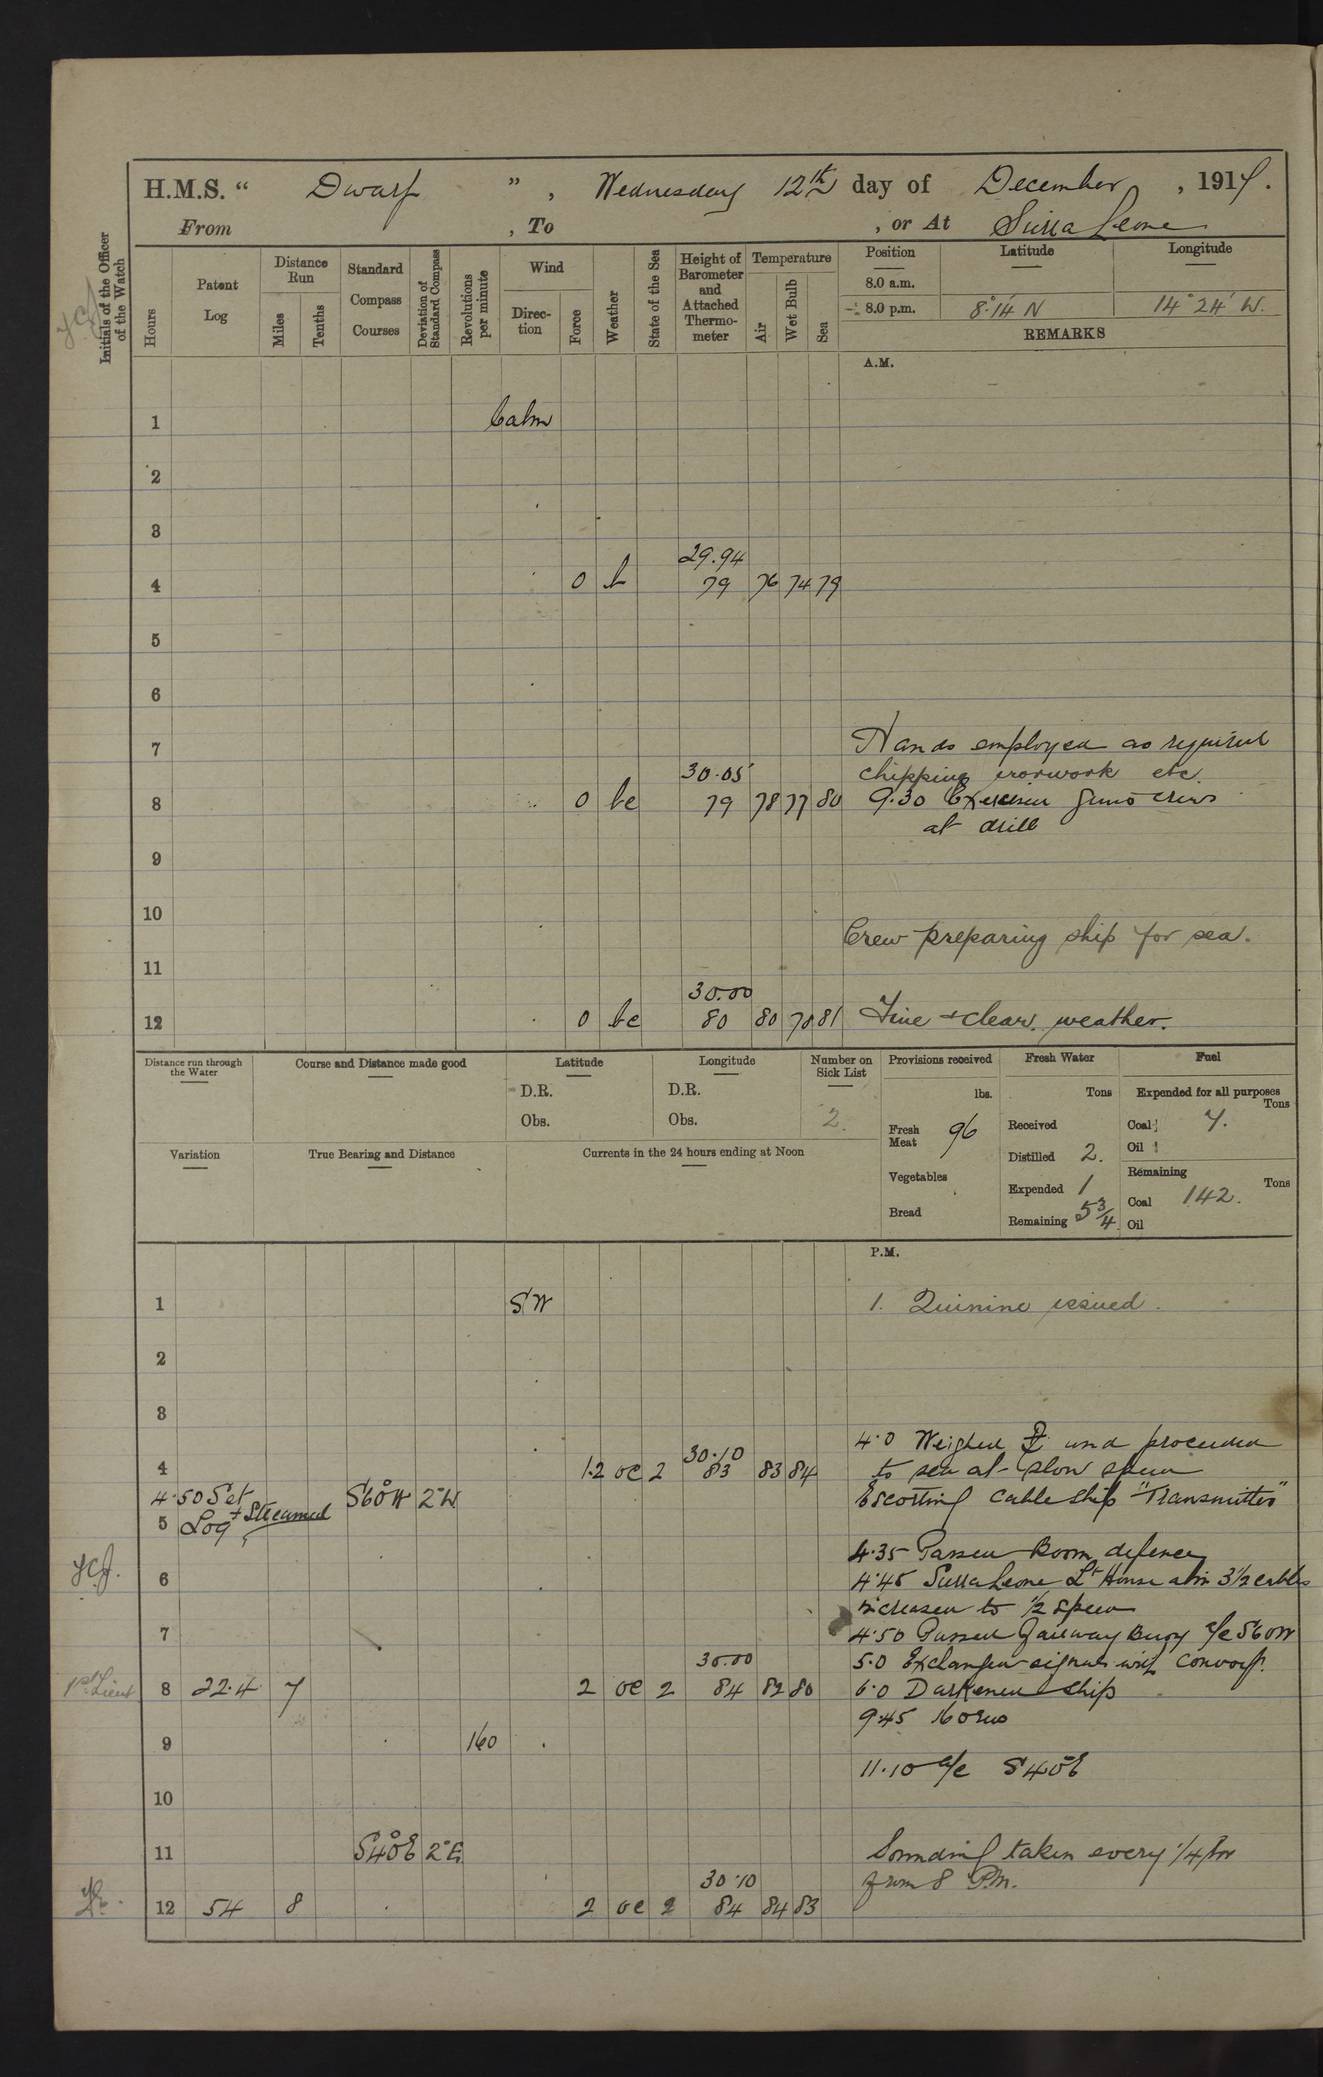 H.M.S. " Dwarf " , Wednesday 12th day of December , 1917.
From , To , or At Sierra Leone
Initials of the Officer of the Watch
Hours
Patent Log
Distance Run
Miles
Tenths
Standard Compass Courses
Deviation of Standard Compass
Revolutions per minute
Wind
Direction
Force
Weather
State of the Sea
Height of Barometer and Attached Thermometer
Temperature
Air
Wet Bulb
Sea
Position Latitude Longitude
8.0 a.m.
8.0 p.m. 8° 14' N 14° 24' W.
REMARKS
A.M.
1 Calm
2
3
29.94
4 0 b 79 76 74 79
5
6
7 Hands employed as required
30.05 chipping ironwork etc.
8 0 bc 79 78 77 80 9.30 Exercised Guns crews
at drill
9
10
Crew preparing ship for sea.
11
30.00
12 0 bc 80 80 78 81 Fine + clear weather.
Distance run through the Water
Course and Distance made good
Latitude
D.R.
Obs.
Longitude
D.R.
Obs.
Number on Sick List
2.
Provisions received
lbs.
Fresh Meat 96
Vegetables
Bread
Fresh Water
Tons
Received
Distilled 2.
Expended 1
Remaining 5 3/4
Fuel
Expended for all purposes
Tons
Coal 7.
Oil
Remaining
Tons
Coal 142.
Oil
Variation
True Bearing and Distance
Currents in the 24 hours ending at Noon
P.M.
1 SW 1. Quinine issued.
2
3
4.0 Weighed and proceeded
30.10
4 1.2 oc 2 83 83 84 to sea at slow speed
4.50 Set S60°W 2°W Escorting cable ship "Transmitter"
5 Log + Streamed
4.35 Passed Boom defence
6 4.45 Sierra Leone Lt House abm 3 1/2 cables
increased to 1/2 speed
7 4.50 Passed Fairway Buoy a/c S60W
30.00 5.0 Exchanged signals with convoy.
1st Lieut 8 22.4 7 2 oc 2 84 82 80 6.0 Darkened ship
9.45 160 revs
9 160
11.10 a/c S40°E
10
11 S40°E 2°E Sounding taken every 1/4 hr
30.10 from 8 P.M.
12 54 8 2 oc 2 84 84 83